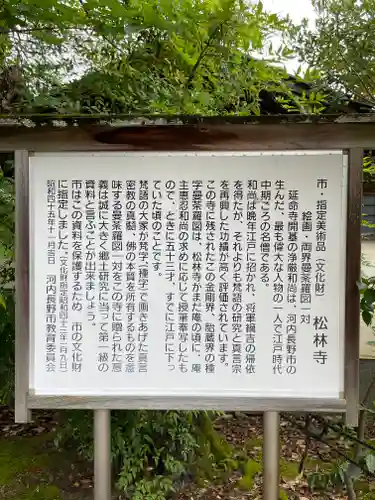 市・指定美術品(文化財)
絵画・両界曼荼羅図一対　松林寺
延命寺開基の浄厳和尚は、河内長野市の
生んだ、最も偉大な人物の一人で江戸時代
中期ごろの名僧である。
和尚は晩年江戸に招かれ、将軍綱吉の帰依
を得たが、それよりも梵語の研究と真言宗
を再興した功績が高く評価されています。
この寺に残された金剛界・胎蔵界の種
字曼荼羅図は、松林寺がまだ庵の頃に、庵
主恵忍和尚の求めに応じて授筆奉写したも
ので、ときに五十三才、すでに江戸に下っ
ていた頃のことです。
梵語の大家が梵字(種字)で画きあげた真言
密教の真髄、佛の本質を所有するものを意
味する曼荼羅図一対をこの寺に贈られた意
義は誠に大きく郷土研究に当って第一級の
資料と言ふことが出来ましょう。
市はこの資料を保護するため、市の文化財
に指定しました。(文化財指定昭和四十三年一月九日)
昭和四十五年十一月吉日　河内長野市教育委員会